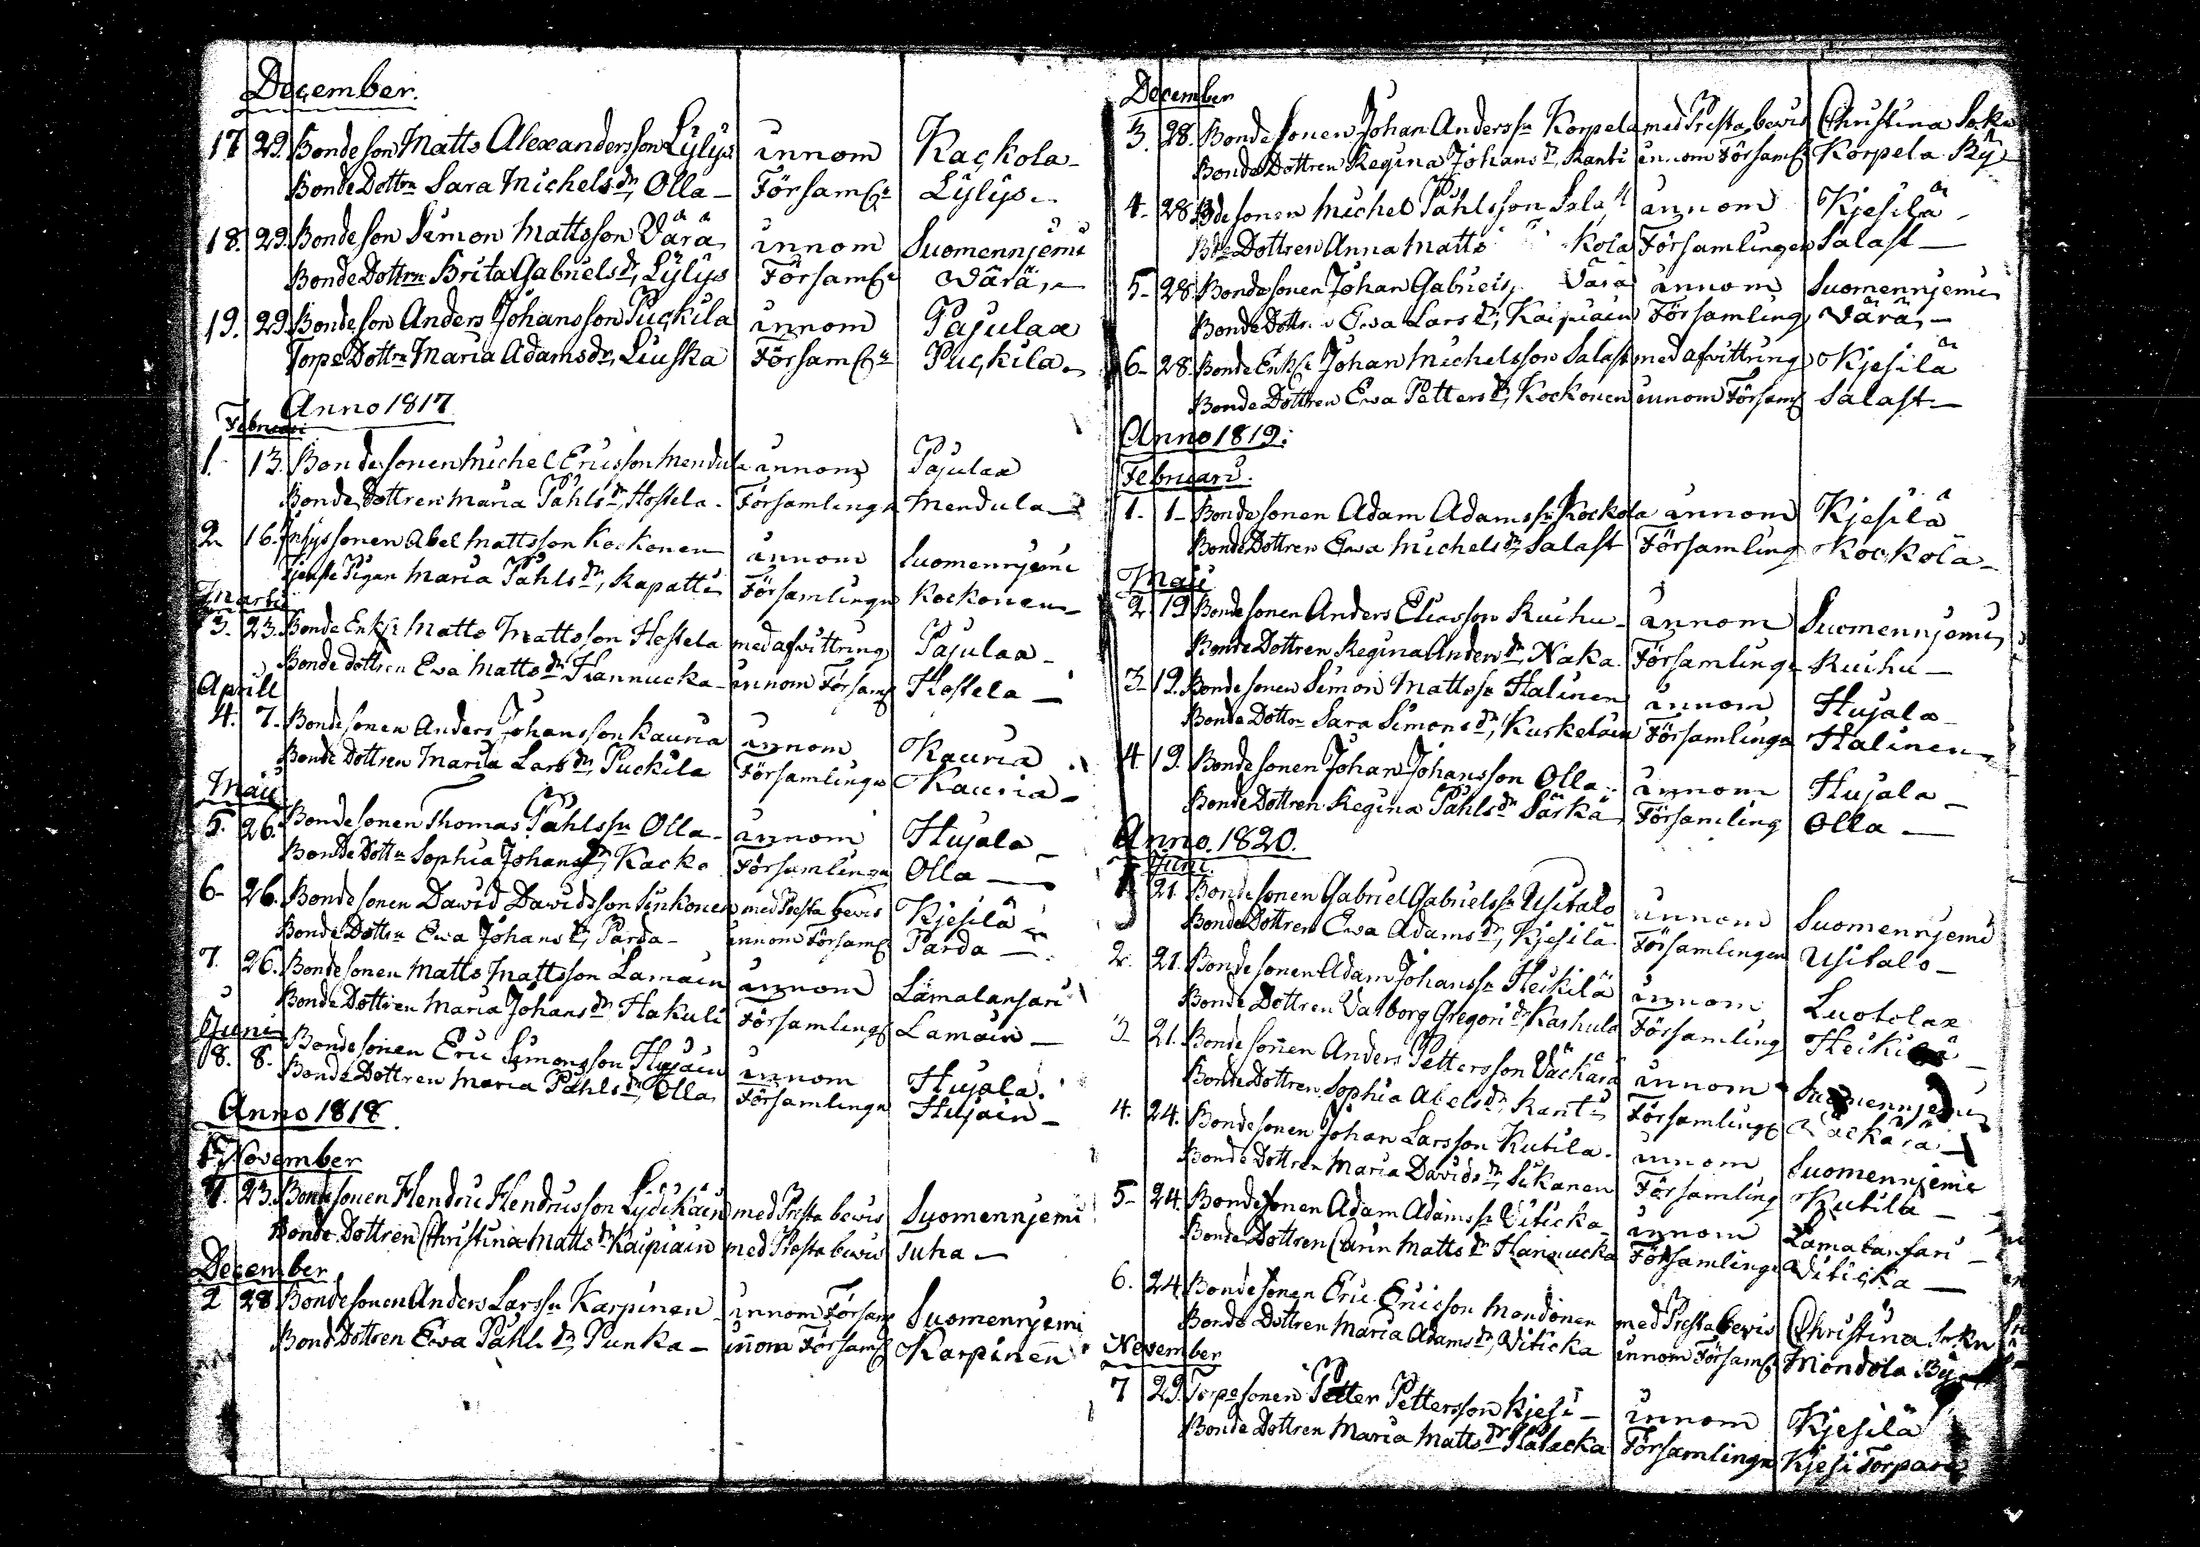 December.
17 29. Bondeson Matts Alexandersson Lylys innom Kackola
Bonde Dottrn Sara Michels dr, Olla Församl:n Lylys
18. 29. Bondeson Simon Mattsson Värä innom Suomennjemi
Bonde Dottrn Brita Gabriels dr, Lylys Församl: Värä
19. 29. Bondeson Anders Johansson Puckila innom Pajulax
Torpe Dottrn Maria Adams dr, Liuska Församl:n Puckila
Anno 1817
Februari
1. 13. Bondesonen Michel Ericsson Mendula innom Pajulax
Bonde Dottren Maria Påhls dr, Hostela Församlingn Mendula
2. 16. Abel Mattsson Kockonen innom Suomennjemi
Tjenste Pigan Maria Påhls dr, Kapatti Församlingn Kockonen
Martii
3. 23. Bonde Enkl: Matts Mattsson Hostela med afvittring Pajulaa
Bonde dottren Ewa Matts dr Hannucka innom Församl Hostela
Aprill
4. 7. Bondesonen Anders Johansson Kauria innom Kauria
Bonde Dottren Maria Lars dr, Puckila Församlingn Kauria
Maii
5. 26. Bondesonen Thomas Påhlssn Olla innom Hujala
Bonde Dottrn Sophia Johans dr, Kacko Församlingn Olla
6. 26. Bondesonen David Davidsson Sinkonen med Presta bevis Kjesilä
Bonde Dottrn Ewa Johans dr, Parda innom Församl Parda
7. 26. Bondesonen Matts Mattsson Lamain innom Lämalansari
Bonde Dottren Maria Johans dr Hakuli Församling Lamain
Juni
8. 8. Bondesonen Eric Simonsson Hujain innom Hujala
Bonde Dottren Maria Påhls dr, Olla Församlingn Hujain
Anno 1818.
November
1. 23. Bondesonen Hendric Hendricsson Lydikäin med Presta bevis Suomennjemi
Bonde Dottren Christina Matts dr Kaipiain med Presta bevis Suha
December
2 28 Bondesonen Anders Larssn Karpinen innom Församl Suomennjemi
Bond Dottren Ewa Påhls dr, Punka innom Församl Karpinen
December
3. 28. Bondesonen Johan Anderssn Korpela med Presta bevis Christina Sokn
Bonde Dottren Regina Johans dr, Kanti innom Församl Korpela By
4. 28. Bdesonen Michel Påhlsson Salast innom Kjesilä
Bde Dottren Anna Matts Församlingen Salast
5. 28. Bondesonen Johan Gabriels Värä innom Suomennjemi
Bonde Dottren Ewa Lars dr, Kaipiain Församling Värä
6. 28. Bonde Enkl: Johan Michelsson Salast med afvittring Kjesilä
Bonde Dottren Ewa Petters dr, Kockonen innom Församl Salast
Anno 1819.
Februari.
1. 1. Bondesonen Adam Adamssn Kockola innom Kjesilä
Bonde Dottren Ewa Michels dr, Salast Församling Kockola
Maii
2. 19 Bondesonen Anders Eliasson Ruihu innom Suomennjemi
Bonde Dottren Regina Anders dr, Naka Församlinge Ruihu
3. 19. Bondesonen Simon Mattssn Halinen innom Hujala
Bonde Dottrn Sara Simons dr, Kurkelain Församlinga Halinen
4. 19. Bondesonen Johan Johansson Olla innom Hujala
Bonde Dottren Regina Påhls dr Särkä Församling Olla
Anno. 1820.
Juni.
1 21 Bondesonen Gabriel Gabrielssn Usitalo innom Suomennjemi
Bonde Dottren Ewa Adams dr, Kjesilä Församlingen Usitalo
2. 21. Bondesonen Adam Johanssn Heikilä innom Luotolax
Bonde Dottren Valborg Gregori dr Kashula Församling Heikilä
3. 21. Bondesonen Anders Pettersson Väckärä innom Suomennjemi
Bonde Dottren Sophia Abels dr, Kanti Församling Väckärä
4. 24. Bondesonen Johan Larsson Kutila innom Suomennjemi
Bonde Dottren Maria Davids dr, Sikanen Församling Kutila
5. 24. Bondesonen Adam Adamssn Viticka innom Lamalansari
Bonde Dottren Carin Matts dr Hannucka Församlinge Viticka
6. 24. Bondesonen Eric Ericson Mondonen med Presta bevis Christina Sokn
Bonde Dottren Maria Adams dr, Viticka innom Församl Mondola By
November
7 29. Torpesonen Petter Pettersson Kjesi innom Kjesilä
Bonde Dottren Maria Matts dr Församlingn Kjesi Torpare